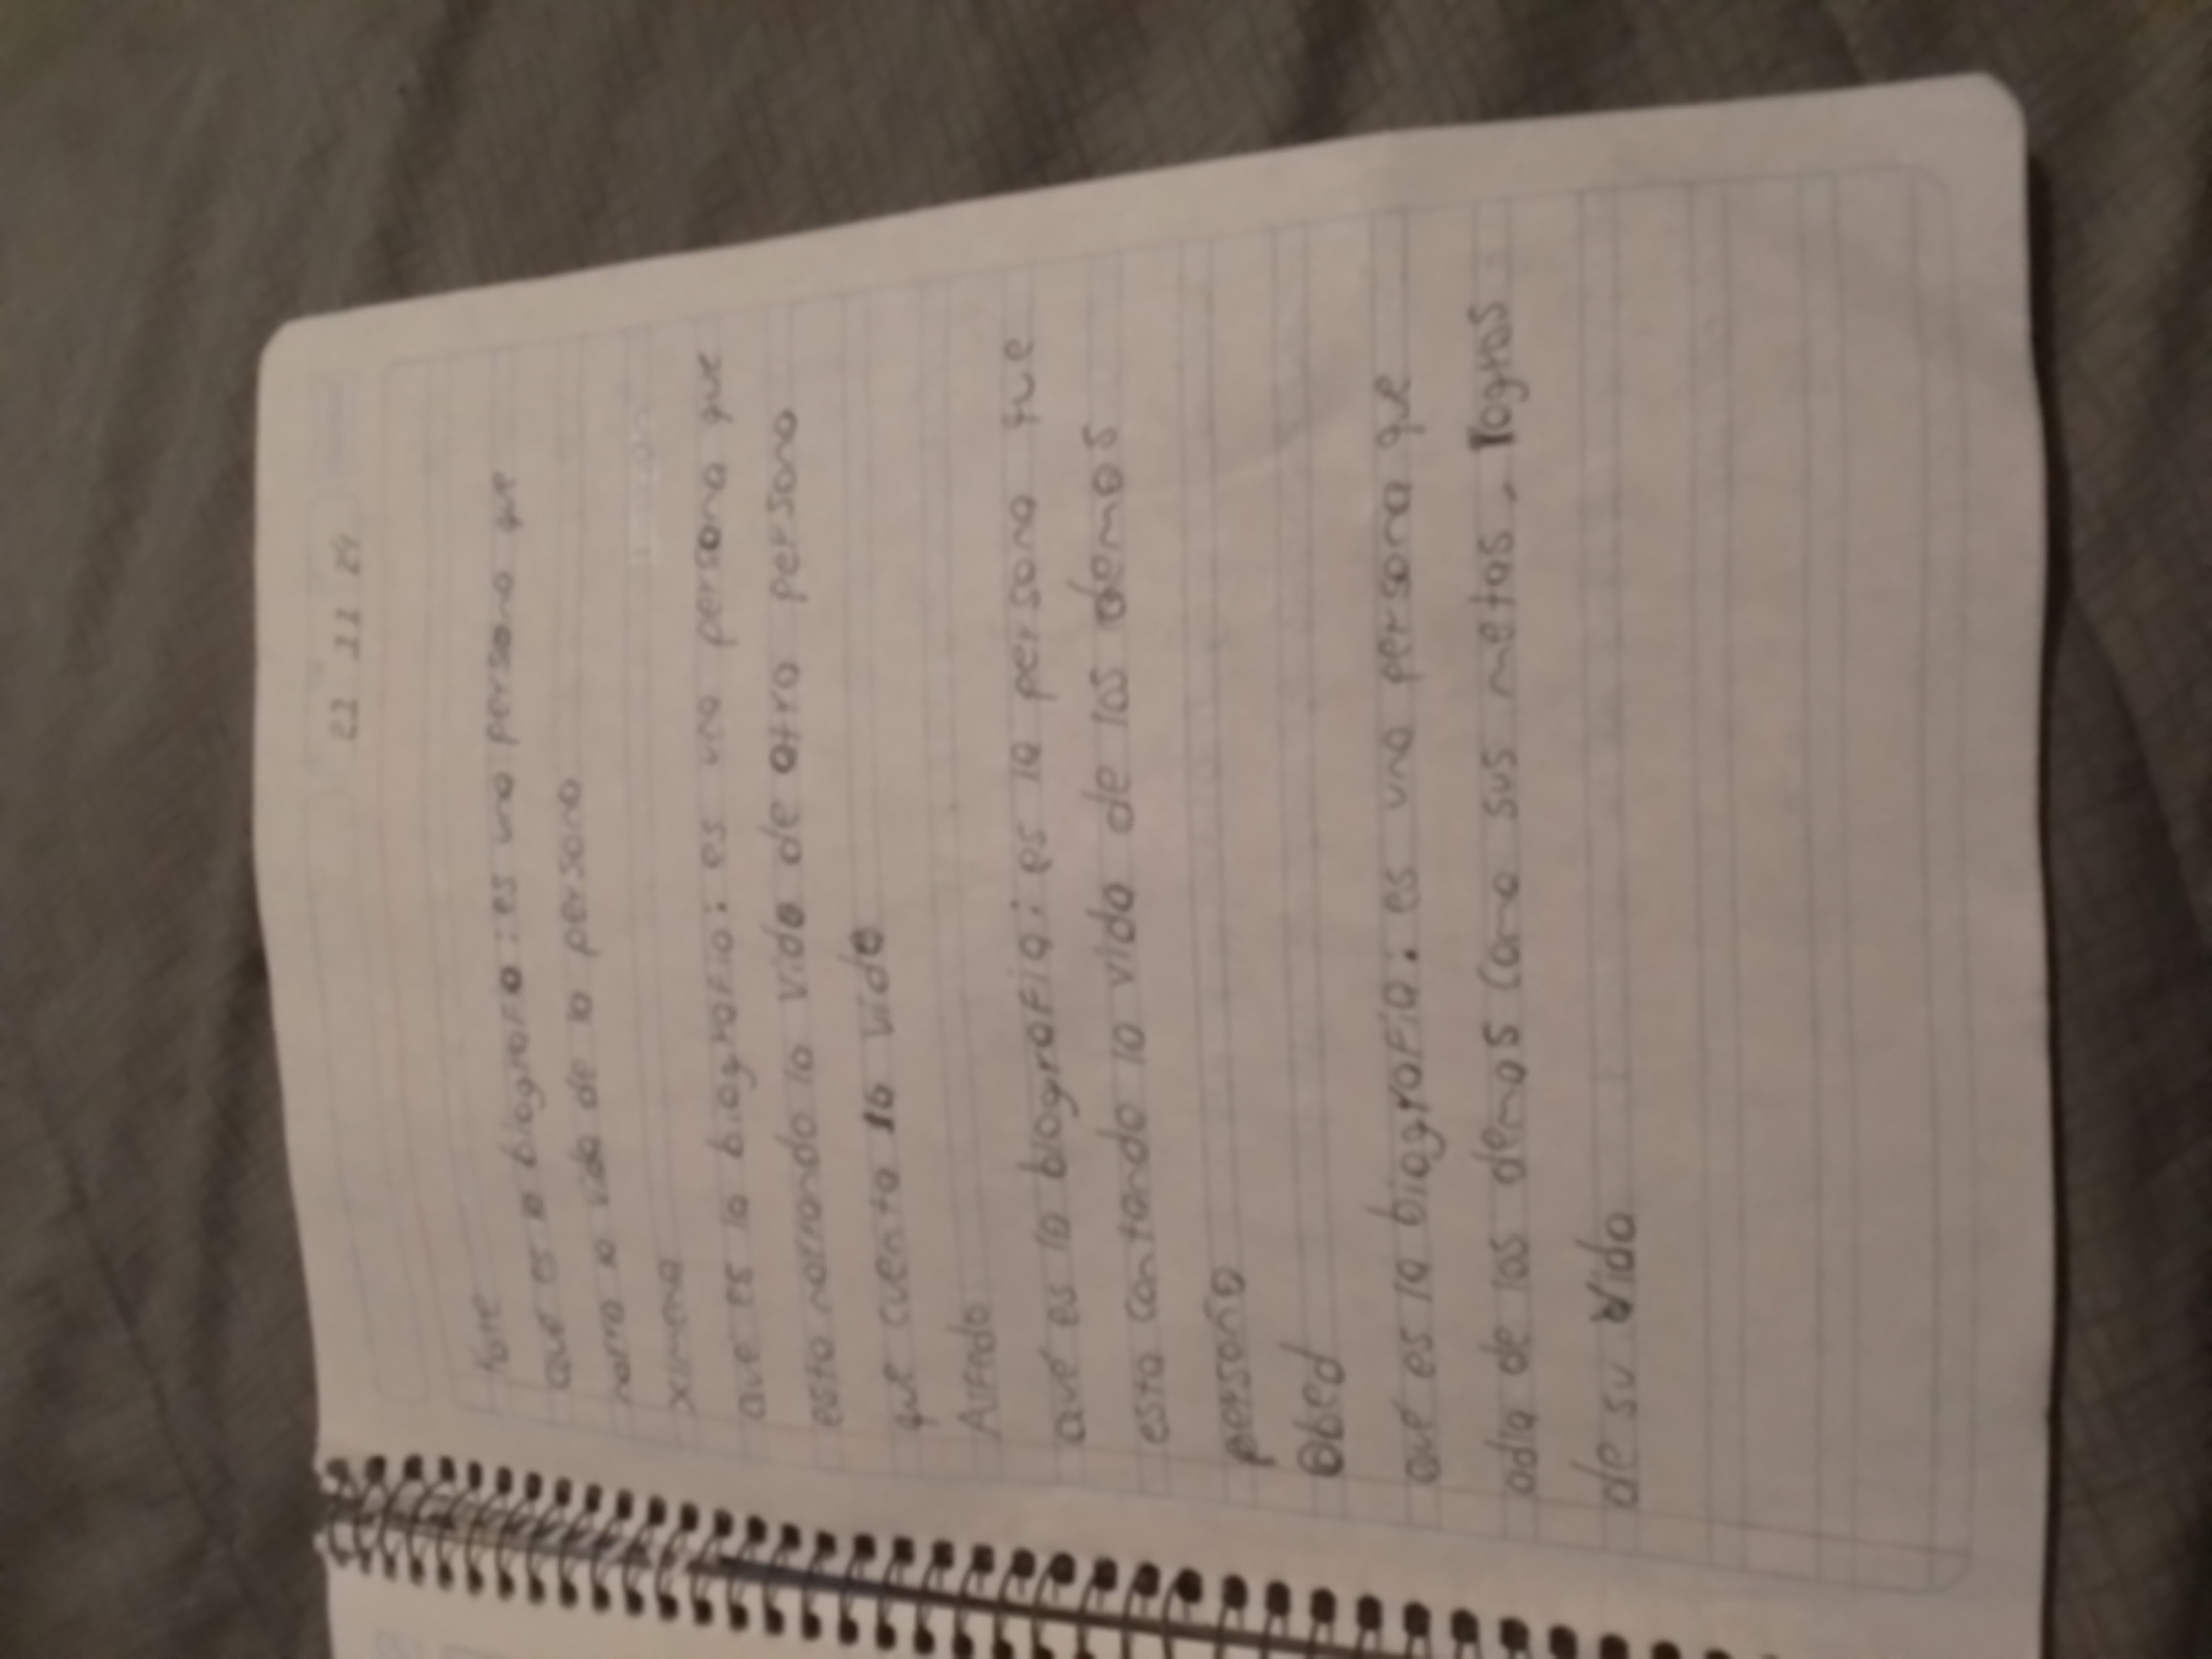 22 11 24
que es la biografia: es una persona que
narra la vida de la persona
ximena
que es la biografia: es una persona que
esta narrando la vida de otra persona
que cuenta la vida
Alfredo
que es la biografia: es la persona que
esta contando la vida de los demas
persona
Obed
que es la biografia: es una persona que
adia de los demas como sus metas, logros
de su vida